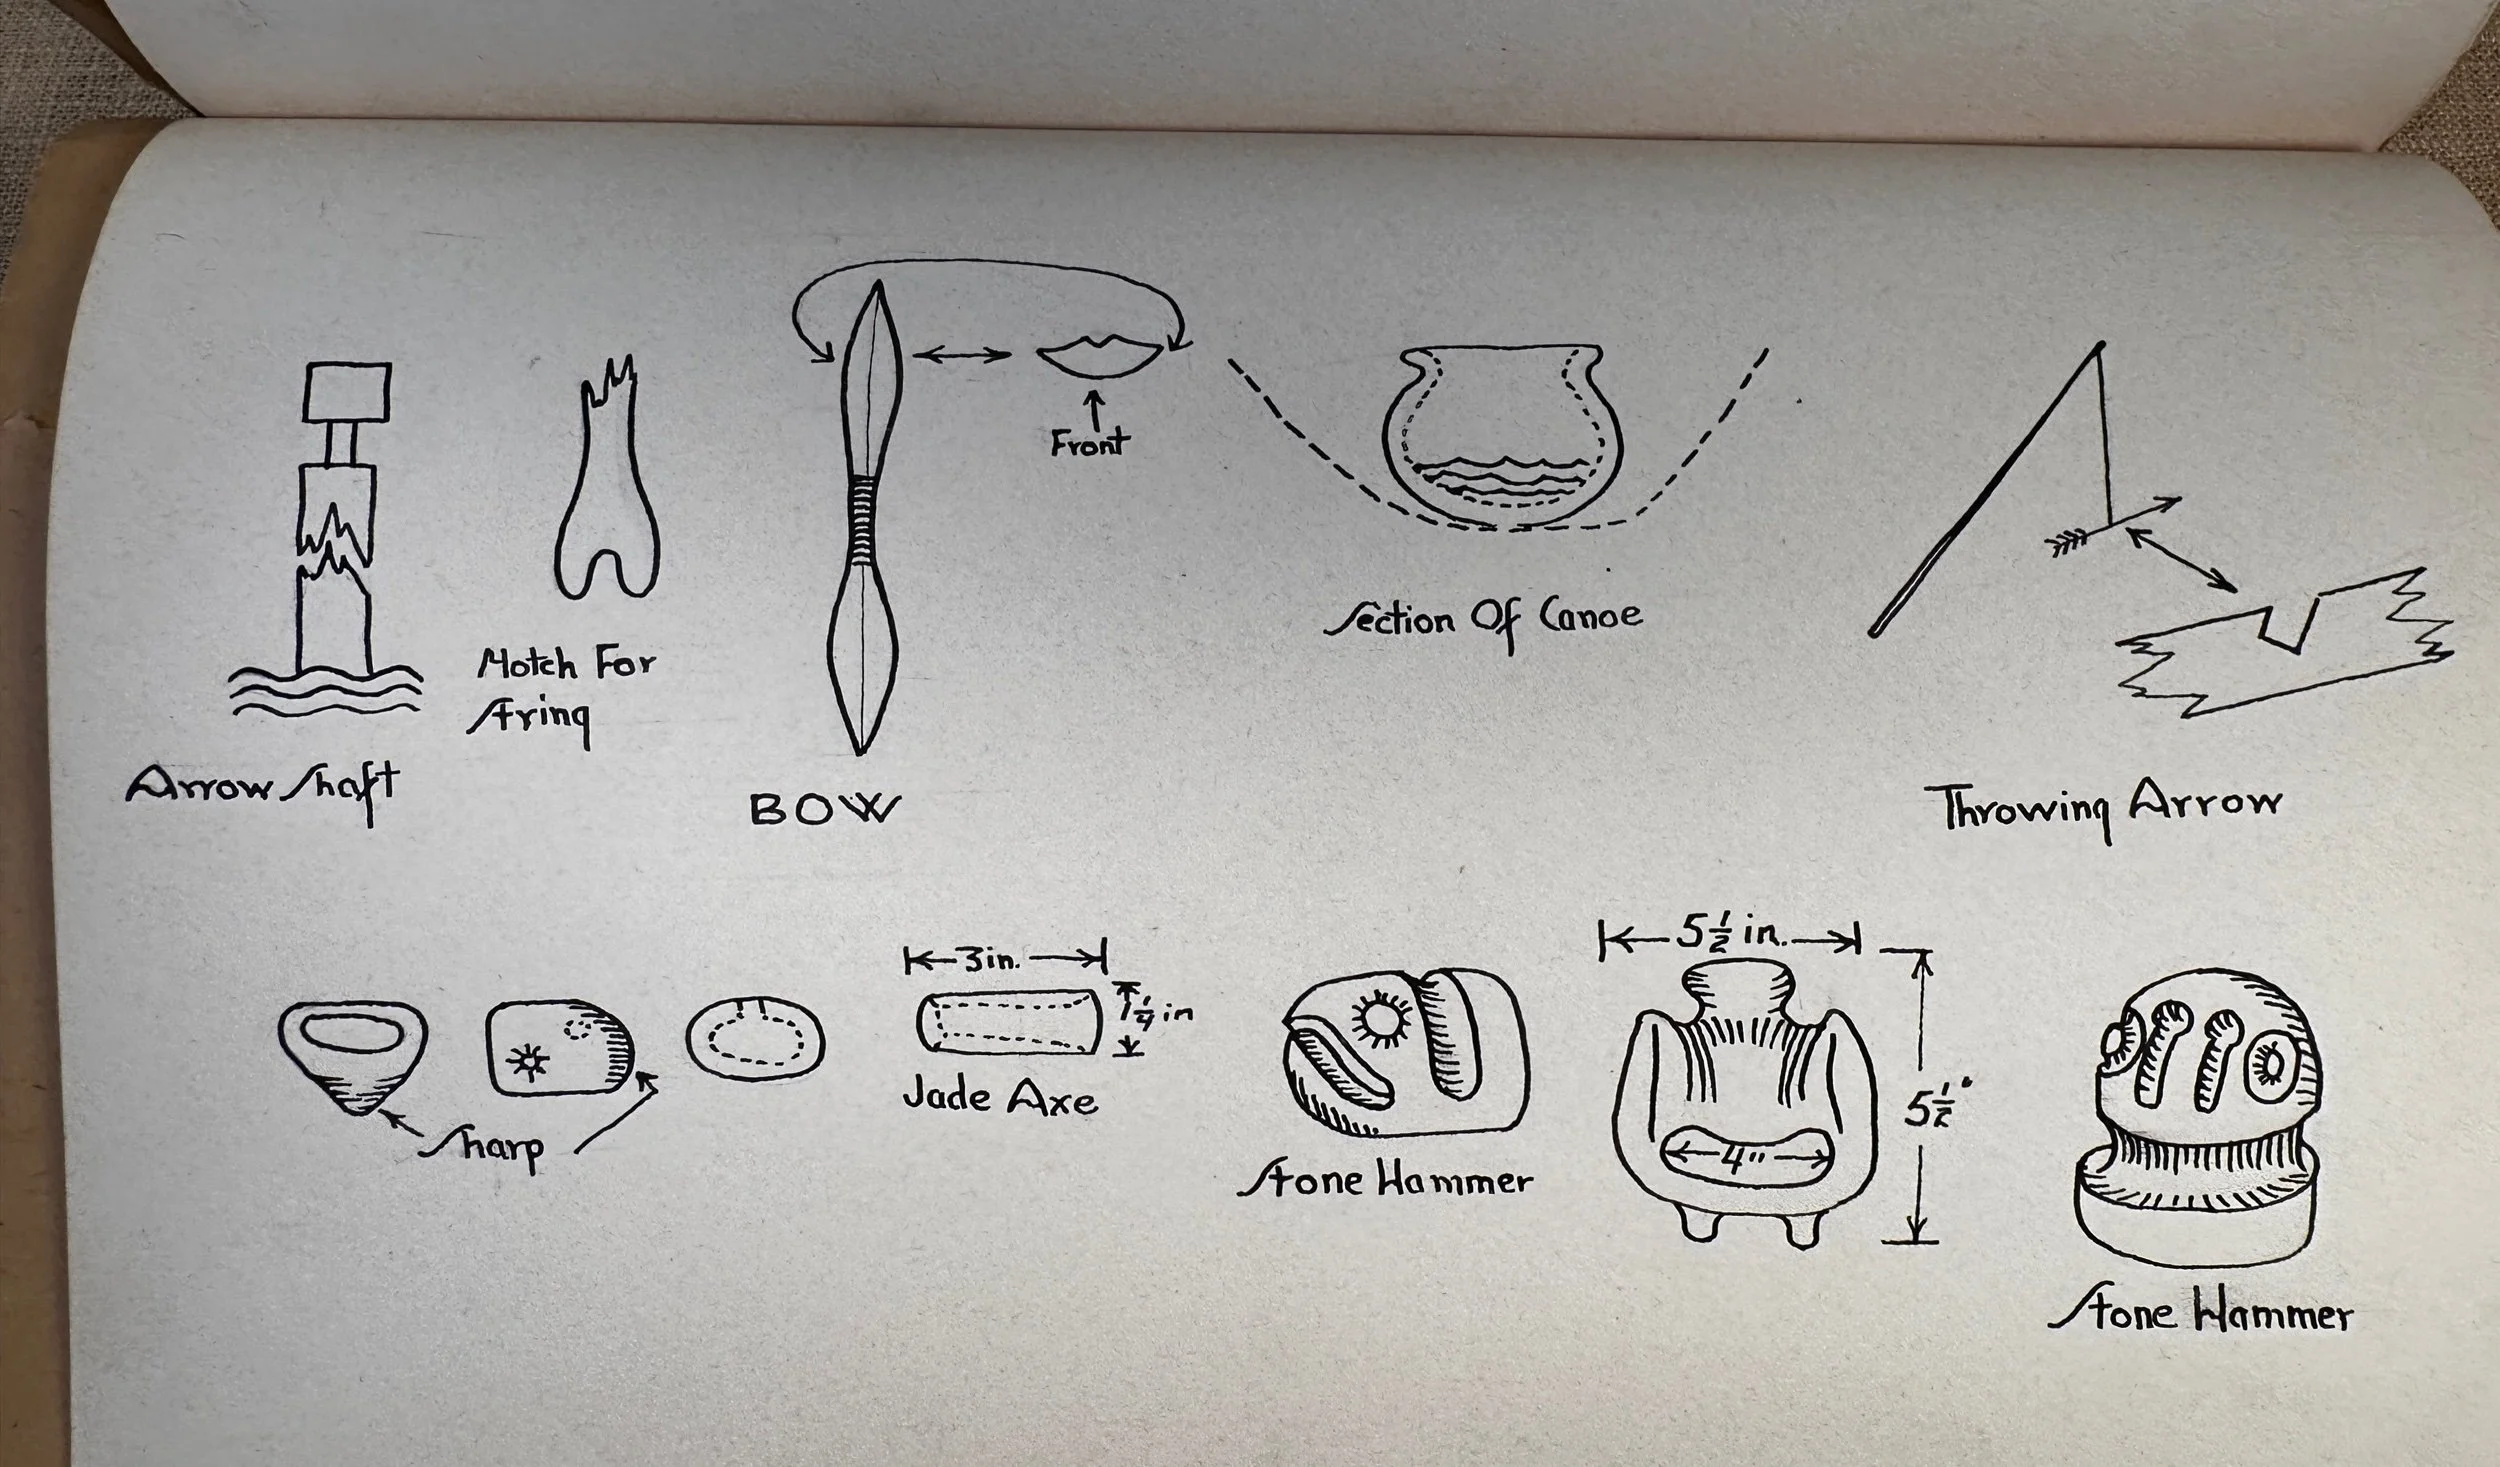 Front
Section Of Canoe
Notch For
String
Arrow Shaft
BOW
Throwing Arrow
5 1/2 in.
3 in.
1 1/4 in
Jade Axe
5 1/2"
Sharp
4"
Stone Hammer
Stone Hammer